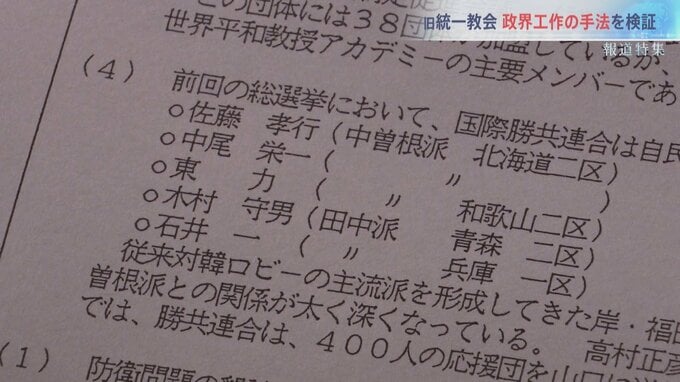 旧統一教会 政界工作の手法を検証
報道特集
この団体には38団体が加盟しているが、
世界平和教授アカデミーの主要メンバーであ
(4) 前回の総選挙において、国際勝共連合は自民
○佐藤 孝行(中曽根派 北海道二区)
○中尾 栄一( 〃 )
○東 力 ( 〃 和歌山二区)
○木村 守男(田中派 青森 二区)
○石井 一 ( 〃 兵庫 一区)
従来対韓ロビーの主流派を形成してきた岸・福田
曽根派との関係が太く深くなっている。 高村正彦
では、勝共連合は、400人の応援団を山口
(1) 防衛問題の